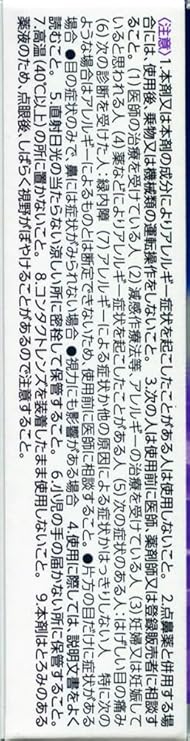 〈注意〉1.本剤又は本剤の成分によりアレルギー症状を起こしたことがある人は使用しないこと。 2.点鼻薬と併用する場
合には、使用後、乗物又は機械類の運転操作をしないこと。 3.次の人は使用前に医師、薬剤師又は登録販売者に相談す
ること。(1)医師の治療を受けている人 (2)減感作療法等、アレルギーの治療を受けている人 (3)妊婦又は妊娠して
いると思われる人 (4)薬などによりアレルギー症状を起こしたことがある人 (5)次の症状のある人:はげしい目の痛み
(6)次の診断を受けた人:緑内障 (7)アレルギーによる症状か他の原因による症状かはっきりしない人 特に次の
ような場合はアレルギーによるものとは断定できないため、使用前に医師に相談すること。●片方の目だけに症状がある
場合 ●目の症状のみで、鼻には症状がみられない場合 ●視力にも影響がある場合 4.使用に際しては、説明文書をよく
読むこと。 5.直射日光の当たらない涼しい所に密栓して保管すること。 6.小児の手の届かない所に保管すること。
7.高温(40℃以上)の所に置かないこと。 8.コンタクトレンズを装着したまま使用しないこと。 9.本剤はとろみのある
薬液のため、点眼後、しばらく視野がぼやけることがあるので注意すること。